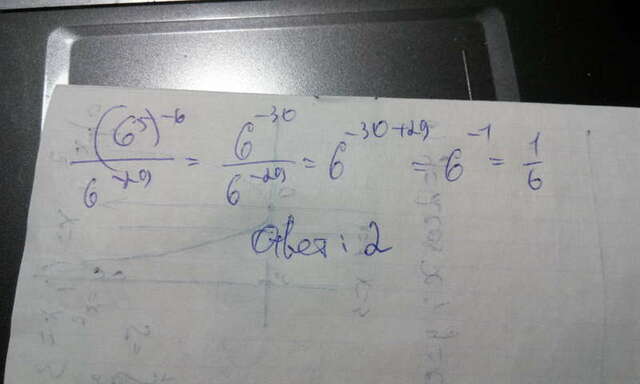 (6⁵)⁻⁶/6⁻²⁹ = 6⁻³⁰/6⁻²⁹ = 6⁻³⁰⁺²⁹ = 6⁻¹ = 1/6
Ответ: 2